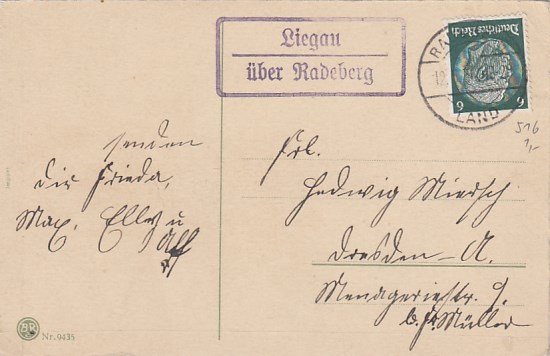 Liegau
über Radeberg
Deutsches Reich
6 6
RA
12.
LAND
516
1,-
senden
dir Frieda,
Max, Elly u
Frl.
Hedwig Miersch
Dresden - A.
Menageriestr. 9.
b. Fr. Müller
BR
Nr. 9435